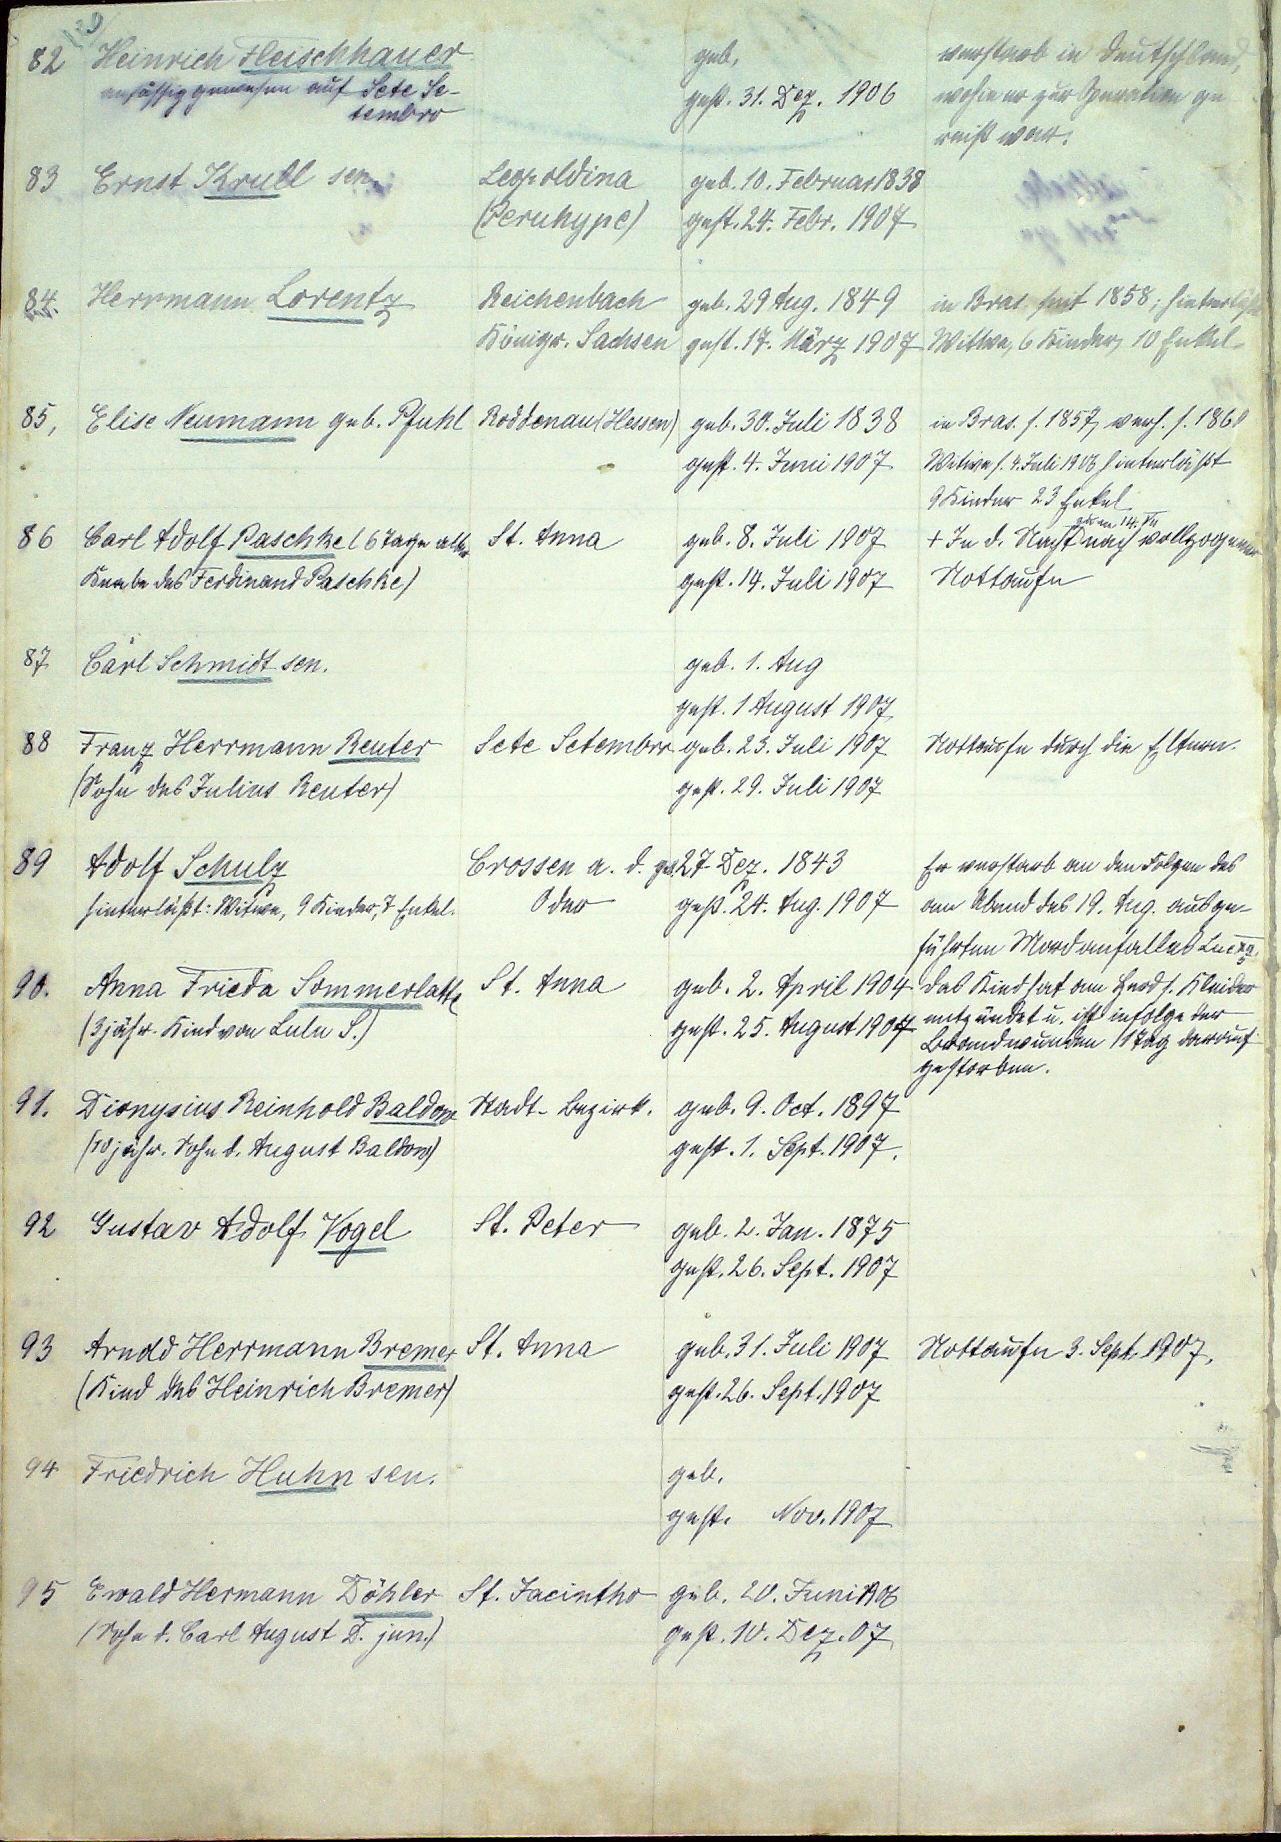 82 Heinrich Fleischhauer geb. verstarb in Deutschland,
ansässig gewesen auf Sete Se- gest. 31. Dez. 1906 wohin er zur Operation ge
tembro reist war.
83 Ernst Krull sen. Leopoldina geb. 10. Februar 1838
(Peruhype) gest. 24. Febr. 1907
84. Herrmann Lorentz Reichenbach geb. 29 Aug. 1849 in Bras. seit 1858; hinterläßt
Königr. Sachsen gest. 17. März 1907 Wittwe, 6 Kinder, 10 Enkel
85, Elise Neumann geb. Pfuhl Roddenau (Hessen) geb. 30. Juli 1838 in Bras. s. 1857, verh. s. 1860
gest. 4. Juni 1907 Witwe s. 4. Juli hinterläßt
9 Kinder 23 Enkel
86 Carl Adolf Paschke (6 Tage alter St. Anna geb. 8. Juli 1907 + In d. Nacht nach am 14. VII vollzogener
Knabe des Ferdinand Paschke) gest. 14. Juli 1907 Nottaufe
87 Carl Schmidt sen. geb. 1. Aug
gest. 1 August 1907
88 Franz Herrmann Reuter Sete Setembro geb. 23. Juli 1907 Nottaufe durch die Eltern.
(Sohn des Julius Reuter) gest. 29. Juli 1907
89 Adolf Schulz Crossen a. d. geb. 27 Dez. 1843 Er verstarb an den Folgen des
hinterläßt: Witwe, 9 Kinder, 7 Enkel. Oder gest. 24. Aug. 1907 am Abend des 19. Aug. ausge-
führten Mordanfalles
90. Anna Frieda Sommerlatte St. Anna geb. 2. April 1904 Das Kind hat am Herd s. Kleider
(3jähr. Kind von Lulu S.) gest. 25. August 1907 entzündet u. ist infolge der
Brandwunden 1 Tag darauf
gestorben.
91. Dionysius Reinhold Baldow Stadt-Bezirk. geb. 9. Oct. 1897
(10jähr. Sohn d. August Baldow) gest. 1. Sept. 1907.
92 Gustav Adolf Vogel St. Peter geb. 2. Jan. 1875
gest. 26. Sept. 1907
93 Arnold Herrmann Bremer St. Anna geb. 31. Juli 1907 Nottaufe 3. Sept. 1907.
(Kind des Heinrich Bremer) gest. 26. Sept. 1907
94 Friedrich Huhn sen. geb.
gest. Nov. 1907
95 Ewald Hermann Döhler St. Jacintho geb. 20. Juni 1906
(Sohn d. Carl August D. jun.) gest. 10. Dez. 07